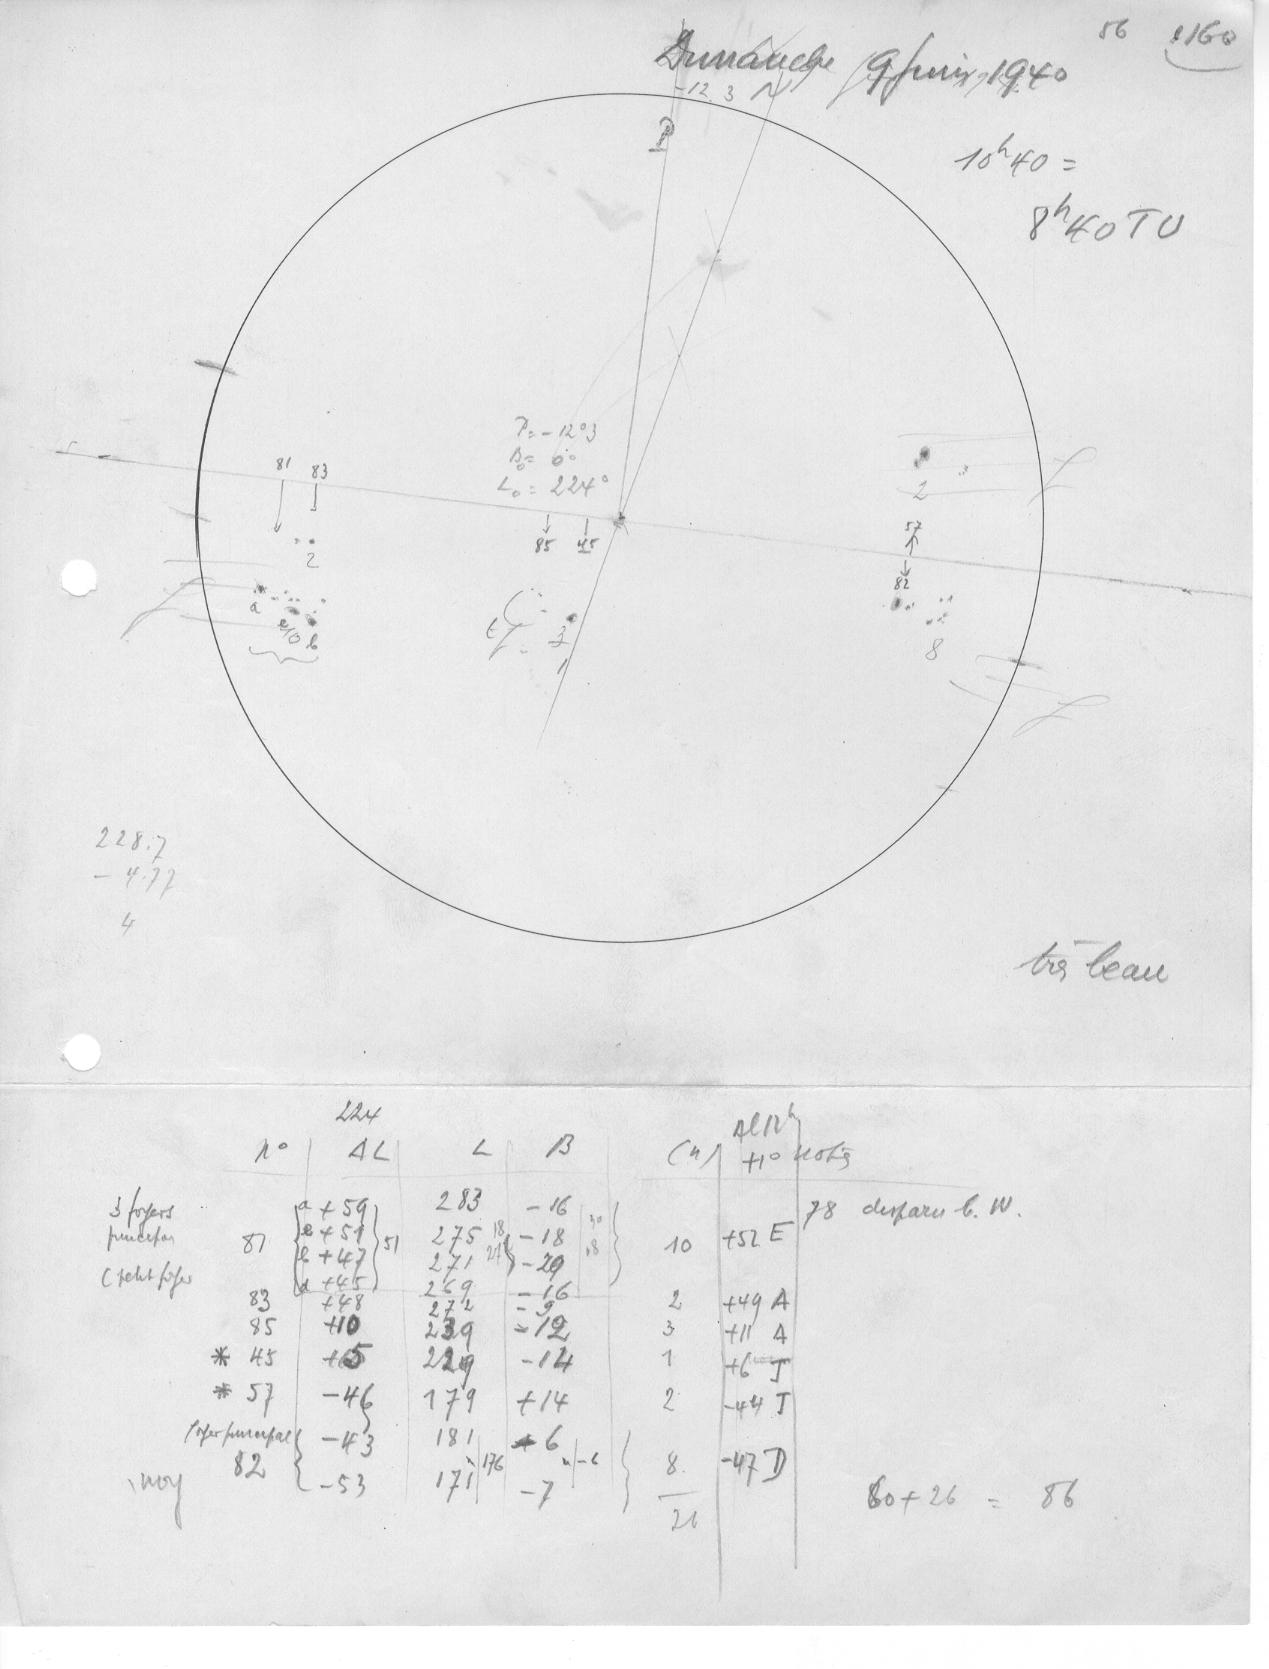 56 1160
Dimanche 9 juin 1940
-12.3 N
P
10h40 =
8h40 TU
P = -12°3
B₀ = 0°
L₀ = 224°
81 83
85 45
2
57
82
2
a
10 b
3
1
8
228.7
- 4.77
4
très beau
224
n° ΔL L B (n) +1° notes
3 foyers a +59 283 -16 78 disparu b. W.
81 +51 51 275 -18 10 +52 E
b +47 271
+45 269 -16
83 +48 272 -9 2 +49 A
85 +10 239 -12 3 +11 A
* 45 +5 229 -14 1 +6 J
* 57 -46 179 +14 2 -44 J
foyer principal -43 181 6
82 176 -6 8 -47 D
moy -53 171 -7
26
60 + 26 = 86